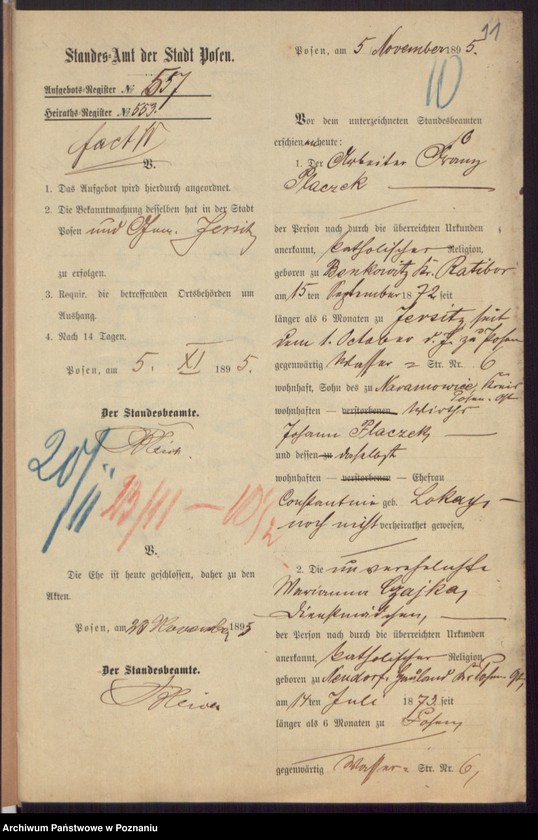 11
Standes-Amt der Stadt Posen.
Aufgebots-Register № 557
Heiraths-Register № 553.
V.
1. Das Aufgebot wird hierdurch angeordnet.
2. Die Bekanntmachung desselben hat in der Stadt
Posen und Jersitz
zu erfolgen.
3. Requir. die betreffenden Ortsbehörden um
Aushang.
4. Nach 14 Tagen.
Posen, am 5. XI 1895.
Der Standesbeamte.
20/11
23/11 — 10 1/2
V.
Die Ehe ist heute geschlossen, daher zu den
Akten.
Posen, am 23 November 1895
Der Standesbeamte.
Posen, am 5 November 1895.
10
Vor dem unterzeichneten Standesbeamten
erschienen heute:
1. Der Arbeiter Franz
Placzek
der Person nach durch die überreichten Urkunden
anerkannt, katholischer Religion,
geboren zu Benkowitz Kr. Ratibor
am 15ten September 1872 seit
länger als 6 Monaten zu Jersitz, seit
dem 1. October d. J. zu Posen
gegenwärtig Wasser- Str. Nr. 6
wohnhaft, Sohn des zu Naramowice, Kreis
Posen-Ost
wohnhaften — verstorbenen Wirths
Johann Placzek
und dessen zu daselbst
wohnhaften — verstorbenen — Ehefrau
Constantine geb. Lokays
noch nicht verheirathet gewesen,
2. Die unverehelichte
Marianna Czajka,
Dienstmädchen,
der Person nach durch die überreichten Urkunden
anerkannt, katholischer Religion
geboren zu Neudorf Hauland Kr. Posen Ost,
am 14ten Juli 1873 seit
länger als 6 Monaten zu Posen,
gegenwärtig Wasser- Str. Nr. 6,
Archiwum Państwowe w Poznaniu